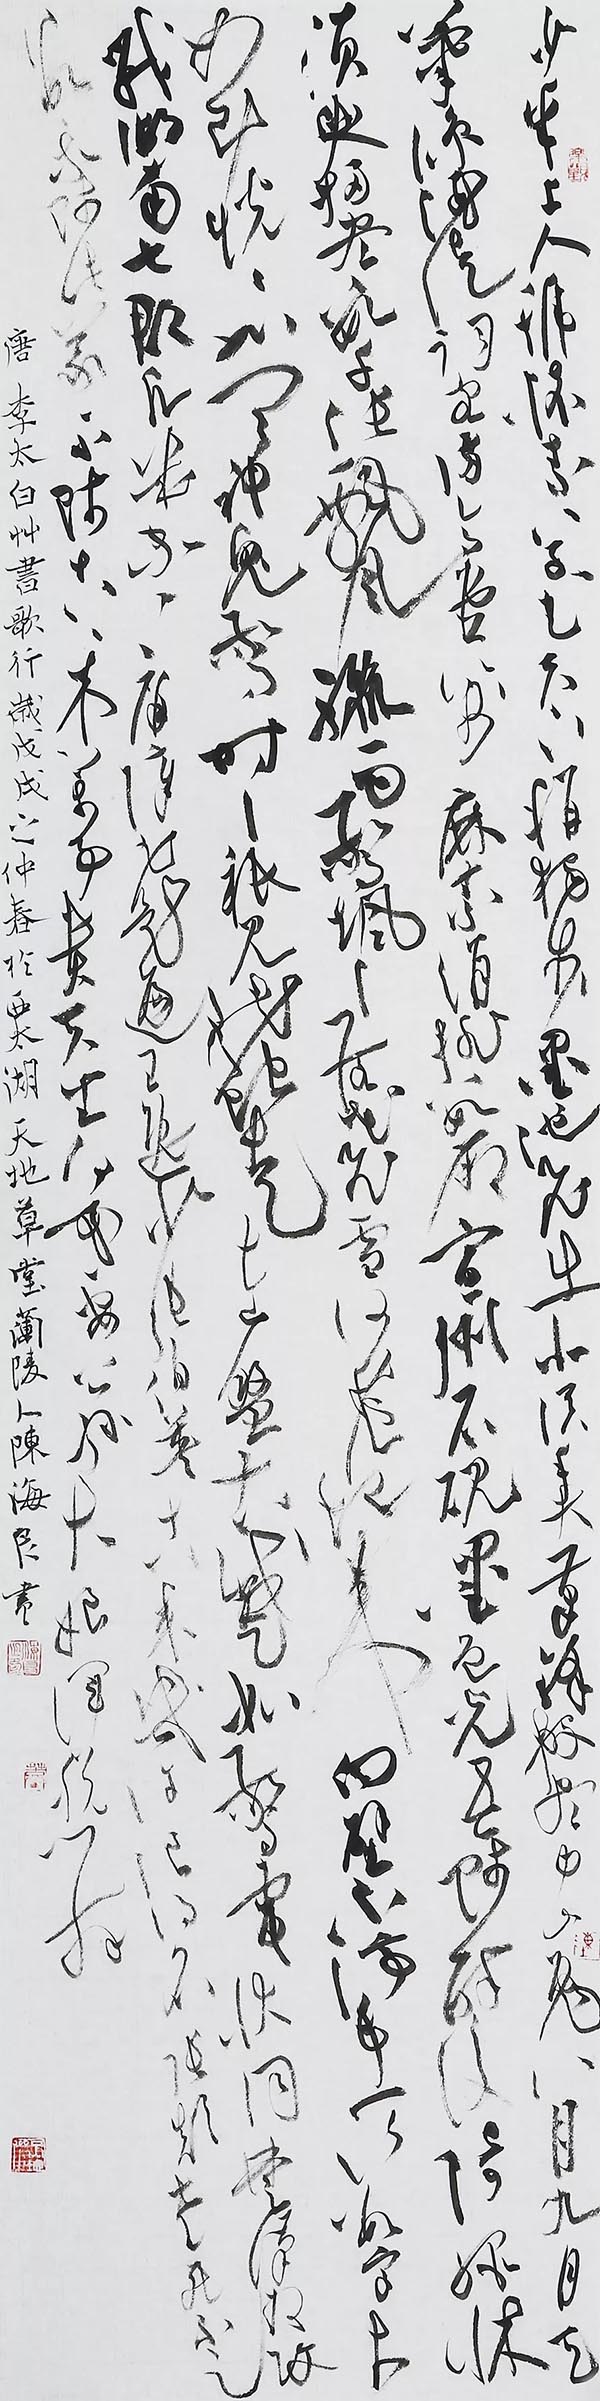 少年上人號懷素草書天下稱獨步墨池飛出北溟魚筆鋒殺盡中山兔八月九月天
氣涼酒徒詞客滿高堂箋麻素絹排數廂宣州石硯墨色光吾師醉後倚繩床
須臾掃盡數千張飄風驟雨驚颯颯落花飛雪何茫茫起來向壁不停手一行數字大
如斗怳怳如聞神鬼驚時時只見龍蛇走左盤右蹙如驚電狀同楚漢相攻
戰湖南七郡凡幾家家家屏障書題遍王逸少張伯英古來幾許浪得名張顛老死不足
數我師此義不師古古來萬事貴天生何必要公孫大娘渾脫舞
唐李太白艸書歌行歲戊戌之仲春於西太湖天地草堂蘭陵人陳海良書